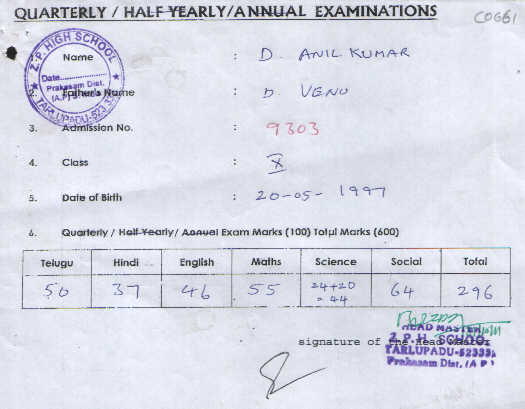 QUARTERLY / HALF YEARLY/ANNUAL EXAMINATIONS
COG61
Z.P. HIGH SCHOOL
Date
Prakasam Dist.
(A.P)
TARLUPADU-523 33
Name : D. ANIL KUMAR
2. Father's Name : D. VENU
3. Admission No. : 9303
4. Class : X
5. Date of Birth : 20-05-1997
6. Quarterly / Half Yearly/ Annual Exam Marks (100) Total Marks (600)
Telugu Hindi English Maths Science Social Total
50 37 46 55 24+20 = 44 64 296
HEAD MASTER
signature of the Head Master
Z. P. H. SCHOOL
TARLUPADU-523332
Prakasam Dist, (A P)